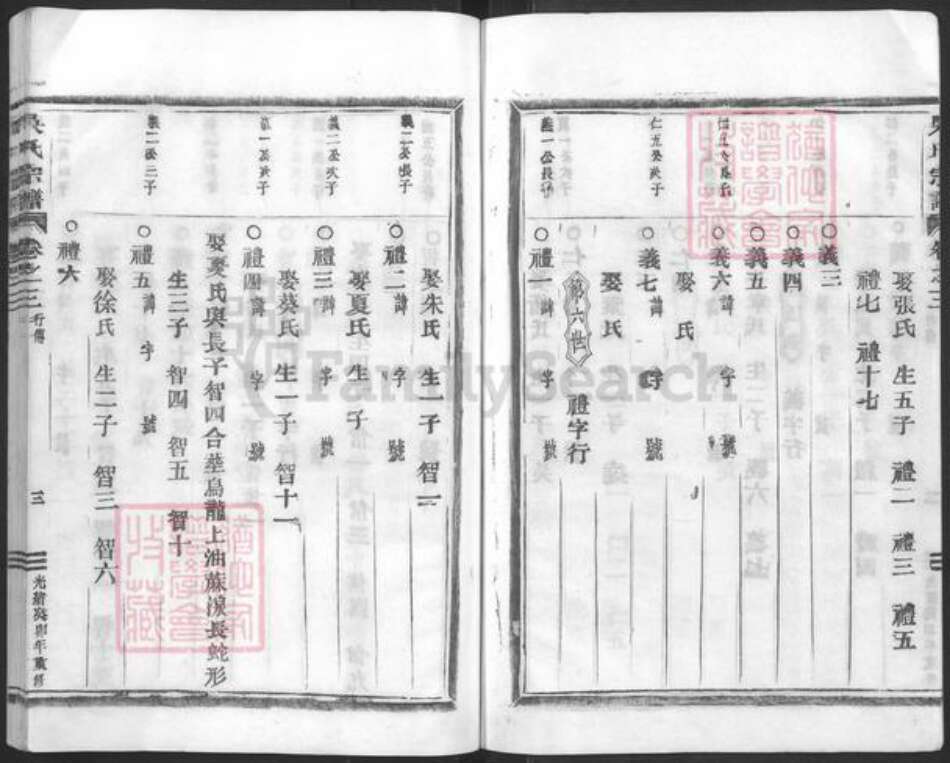 娶張氏 生五子 禮二 禮三 禮五
禮七 禮十七
○義三
○義四
○義五
○義六 諱 字 號
娶 氏
仁五公次子
○義七 諱 字 號
娶 氏
第六世 禮字行
義一公長子
○禮一 諱 字 號
義二公長子
娶朱氏 生一子 智一
○禮二 諱 字 號
娶夏氏 生 子
義二公次子
○禮三 諱 字 號
娶葵氏 生一子 智十一
義一公次子
○禮四 諱 字 號
娶夏氏與長子智四合塟烏龍上油蔴濵長蛇形
生三子 智四 智五 智十
義二公三子
○禮五 諱 字 號
娶徐氏 生二子 智三 智六
○禮六
吳氏宗譜 卷之三 行傳 三 光緒癸卯年重修
FamilySearch